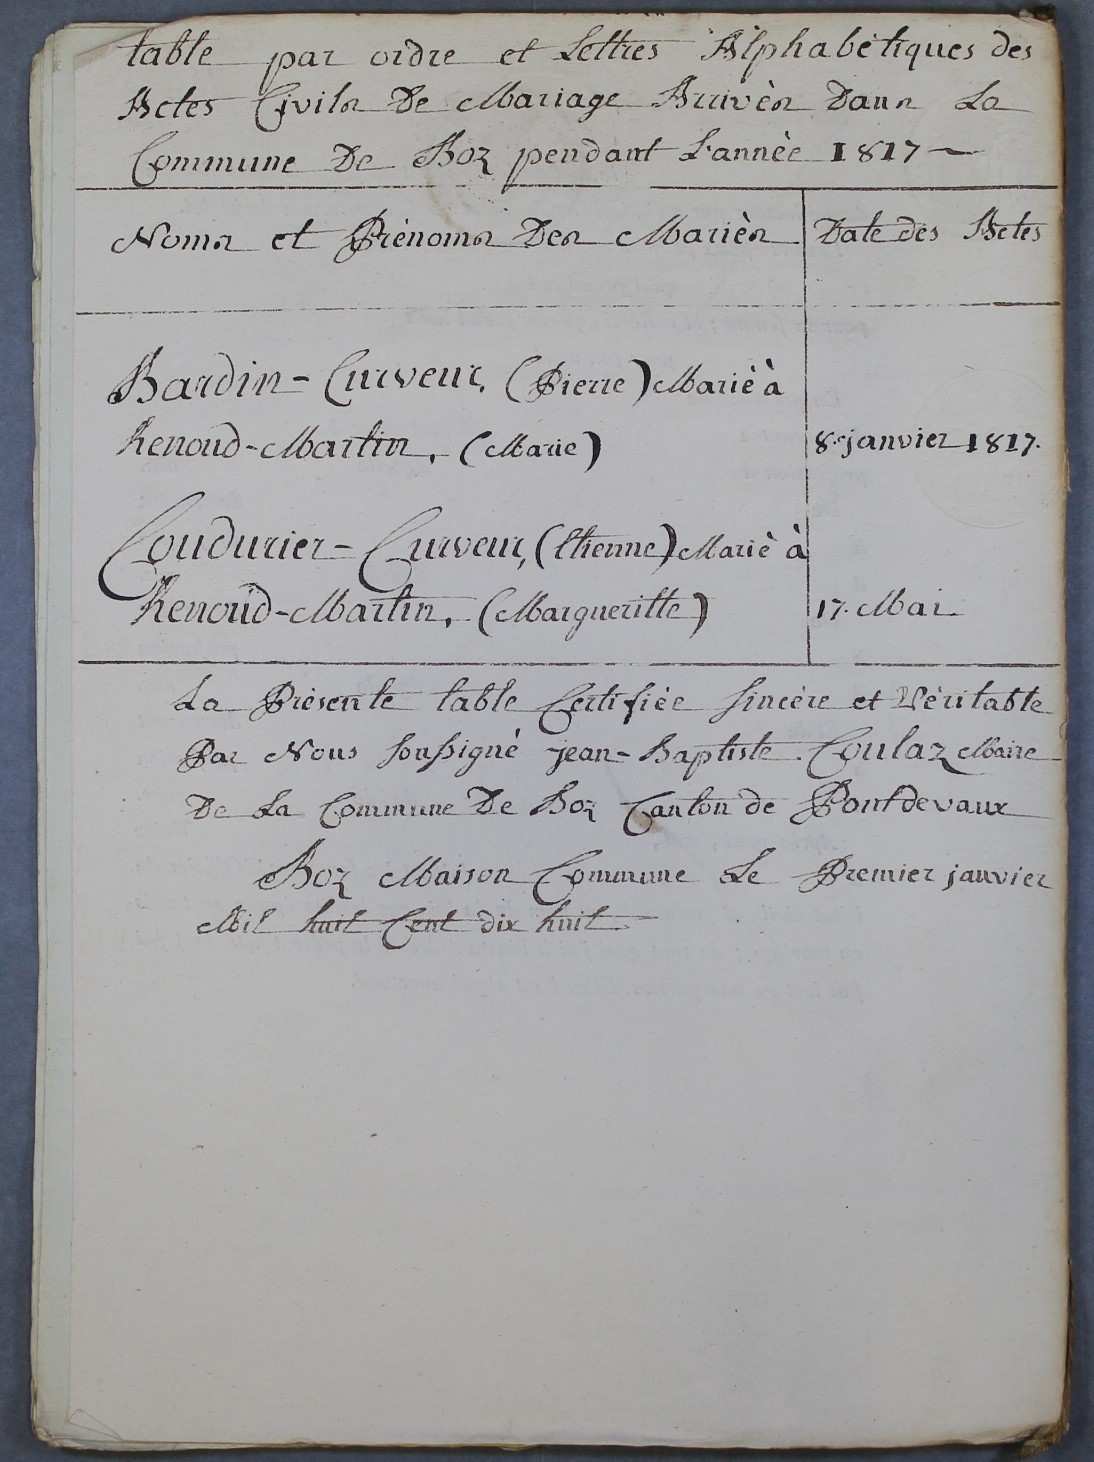 table par ordre et Lettres Alphabétiques des
Actes Civils De Mariage Arrivès Dans La
Commune De Boz pendant L'année 1817
Noms et Prénoms Des Mariès Date des Actes
Bardin-Curveur, (Pierre) Marié à
Renoud-Martin, (Marie) 8. janvier 1817.
Coudurier-Curveur, (Etienne) Marié à
Renoud-Martin, (Margueritte) 17. Mai
La Présente table Certifiée Sincère et Véritable
Par Nous Soussigné jean-Baptiste Coulaz Maire
De La Commune De Boz Canton de Pontdevaux
Boz Maison Commune Le Premier janvier
Mil huit Cent dix huit